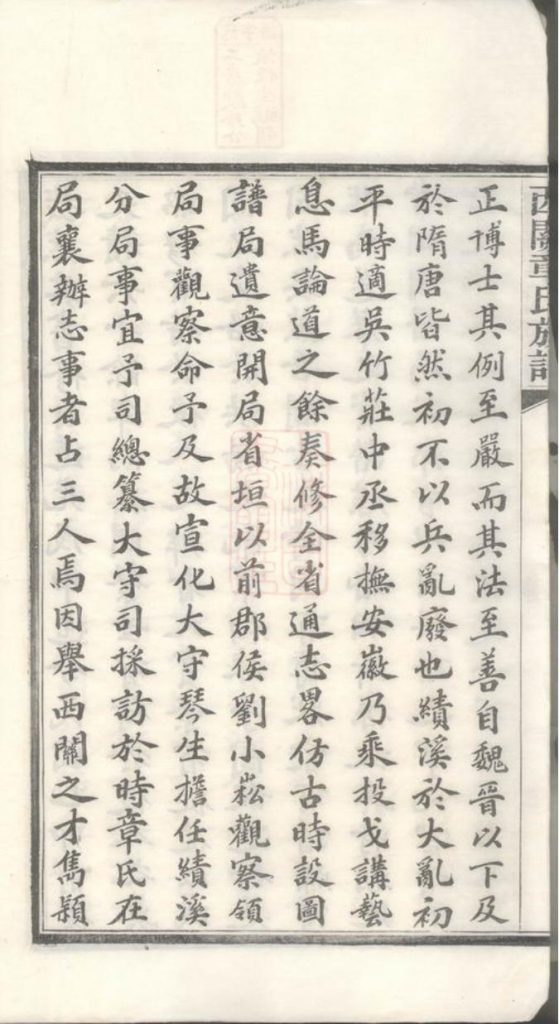 西關章氏族譜
正博士其例至嚴而其法至善自魏晉以下及
於隋唐皆然初不以兵亂廢也績溪於大亂初
平時適吳竹莊中丞移撫安徽乃乘投戈講藝
息馬論道之餘奏修全省通志畧仿古時設圖
譜局遺意開局省垣以前郡侯劉小崧觀察領
局事觀察命予及故宣化大守琴生擔任績溪
分局事宜予司總纂大守司採訪於時章氏在
局襄辦志事者占三人焉因舉西關之才雋穎